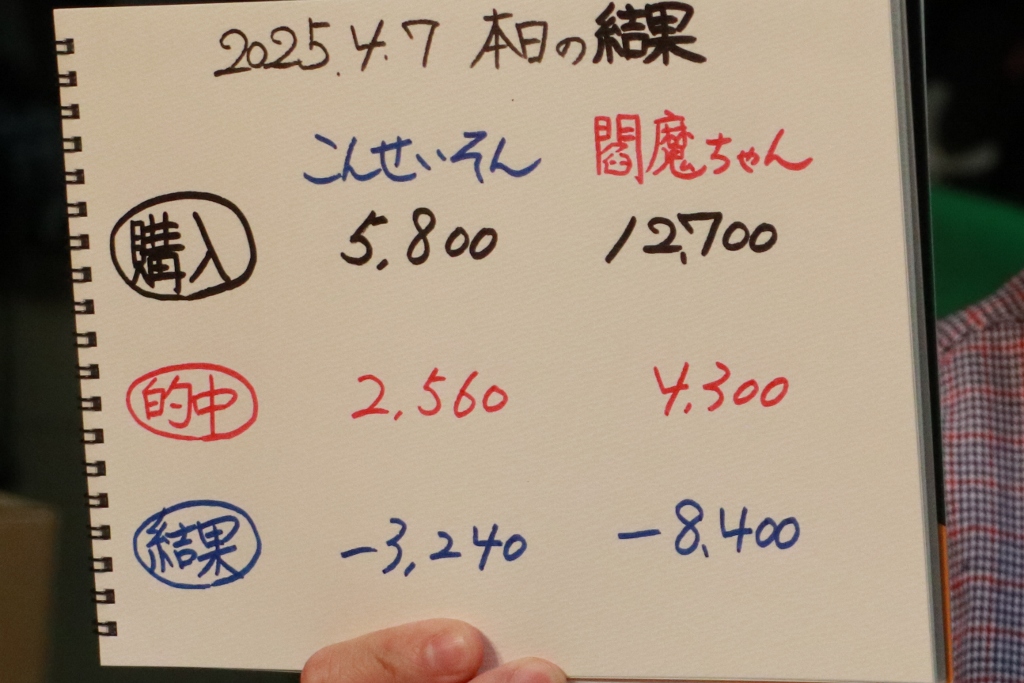 2025.4.7 本日の結果
こんせいそん 閻魔ちゃん
購入 5,800 12,700
的中 2,560 4,300
結果 -3,240 -8,400